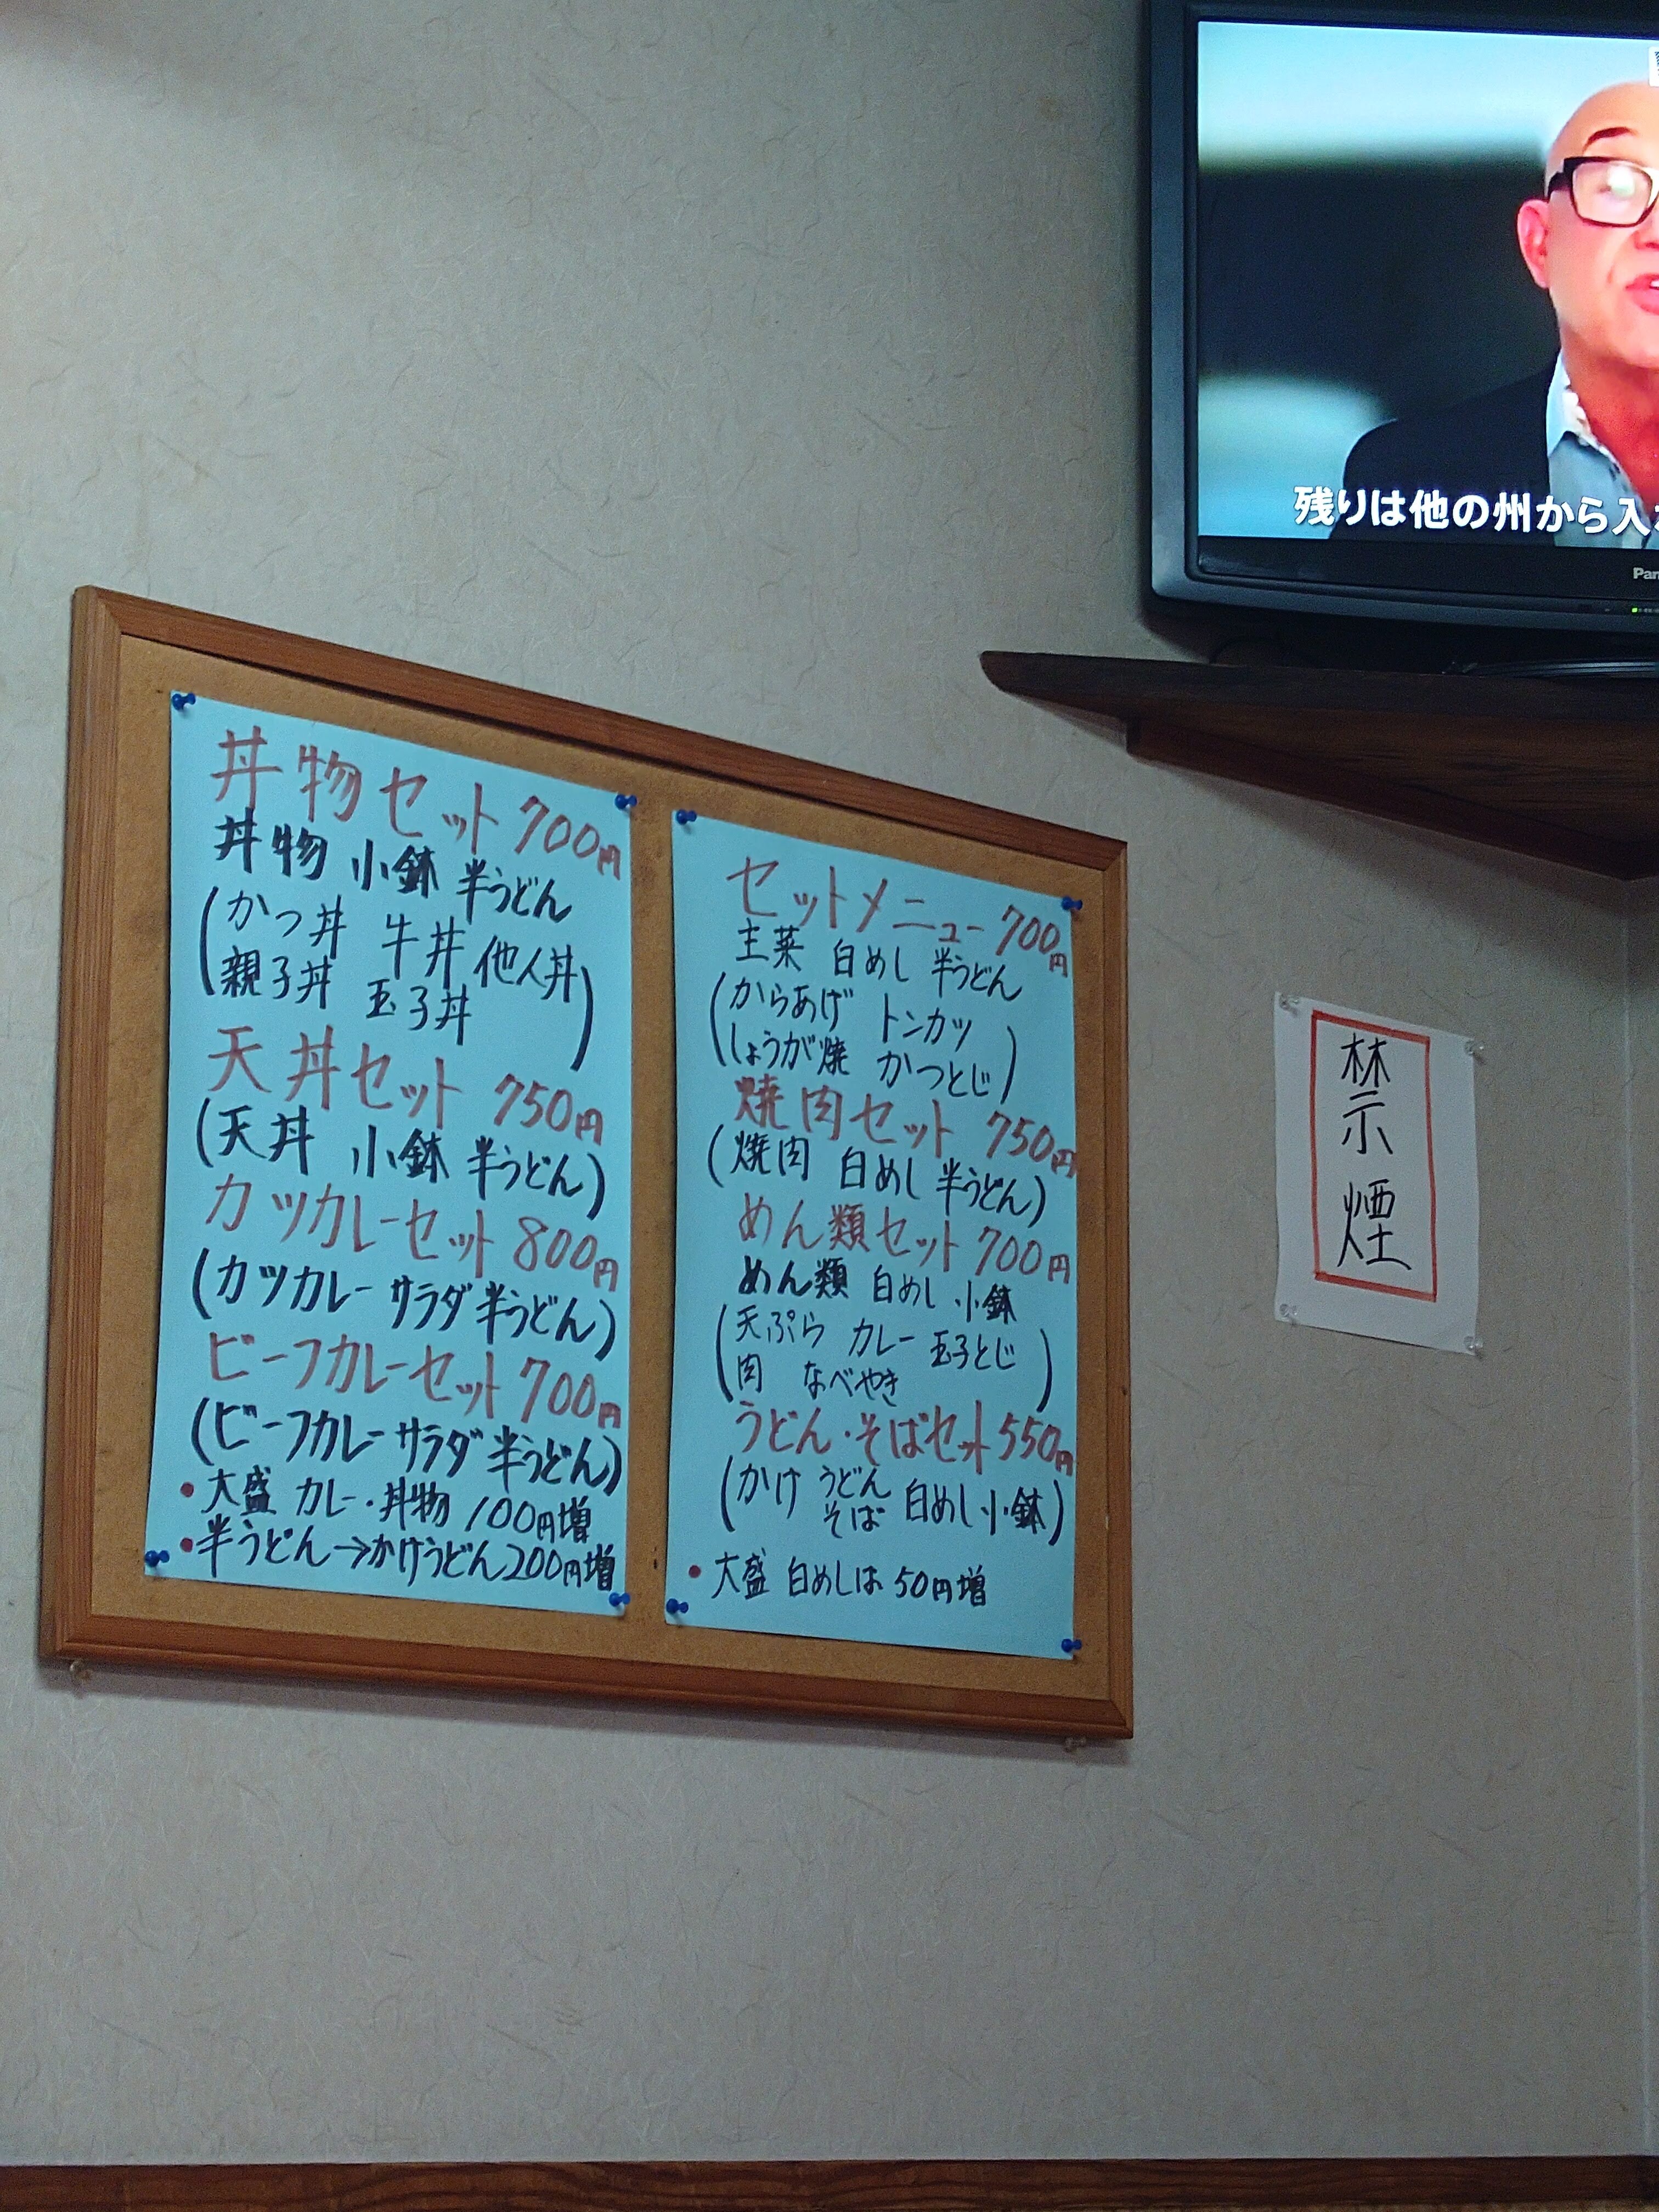 丼物セット 700円
丼物 小鉢 半うどん
(かつ丼 牛丼 他人丼
親子丼 玉子丼)
天丼セット 750円
(天丼 小鉢 半うどん)
カツカレーセット 800円
(カツカレー サラダ 半うどん)
ビーフカレーセット 700円
(ビーフカレー サラダ 半うどん)
・大盛 カレー・丼物 100円増
・半うどん→かけうどん200円増
セットメニュー 700円
主菜 白めし 半うどん
(からあげ トンカツ
しょうが焼 かつとじ)
焼肉セット 750円
(焼肉 白めし 半うどん)
めん類セット 700円
めん類 白めし 小鉢
(天ぷら カレー 玉子とじ
肉 なべやき)
うどん・そばセット 550円
(かけ うどん
そば 白めし 小鉢)
・大盛 白めしは 50円増
禁煙
残りは他の州から入
Pan